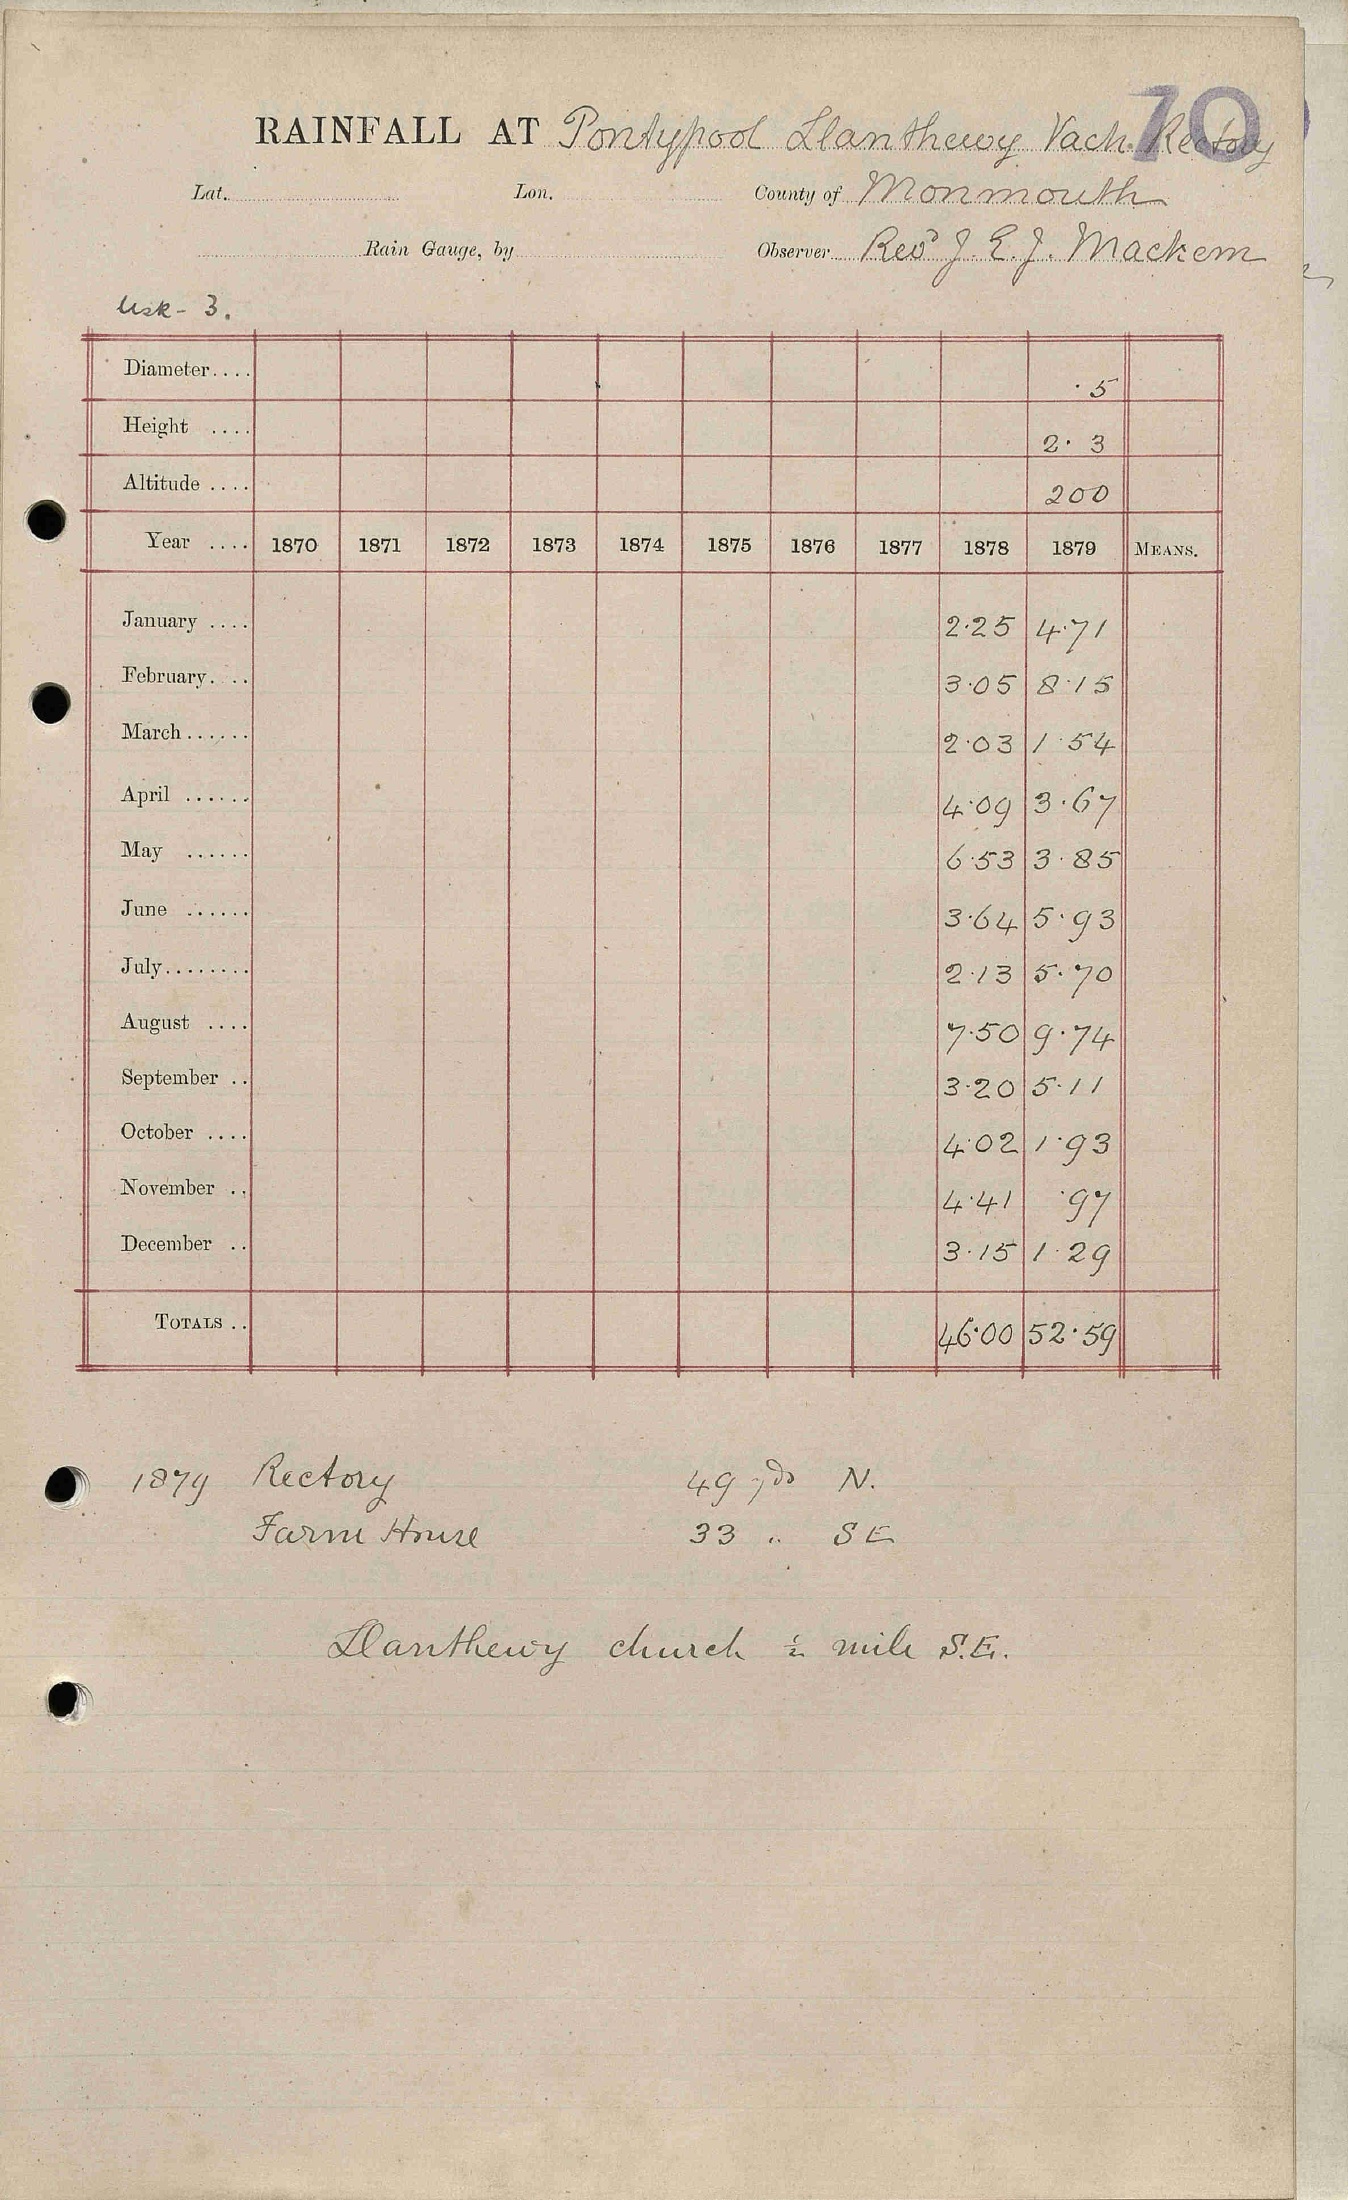 70
RAINFALL AT Pontypool Llanthewy Vach. Rectory
Lat. Lon. County of Monmouth
Rain Gauge, by Observer Revd J. E. J. Mackem
Usk - 3.
Diameter.... ·5
Height .... 2· 3
Altitude .... 200
Year .... 1870 1871 1872 1873 1874 1875 1876 1877 1878 1879 MEANS.
January .... 2·25 4·71
February. .. 3·05 8·15
March...... 2·03 1·54
April ...... 4·09 3·67
May ...... 6·53 3·85
June ...... 3·64 5·93
July........ 2·13 5·70
August .... 7·50 9·74
September .. 3·20 5·11
October .... 4·02 1·93
November .. 4·41 ·97
December .. 3·15 1·29
TOTALS .. 46·00 52·59
1879 Rectory 49 yds N.
Farm House 33 " SE
Llanthewy church ½ mile S.E.